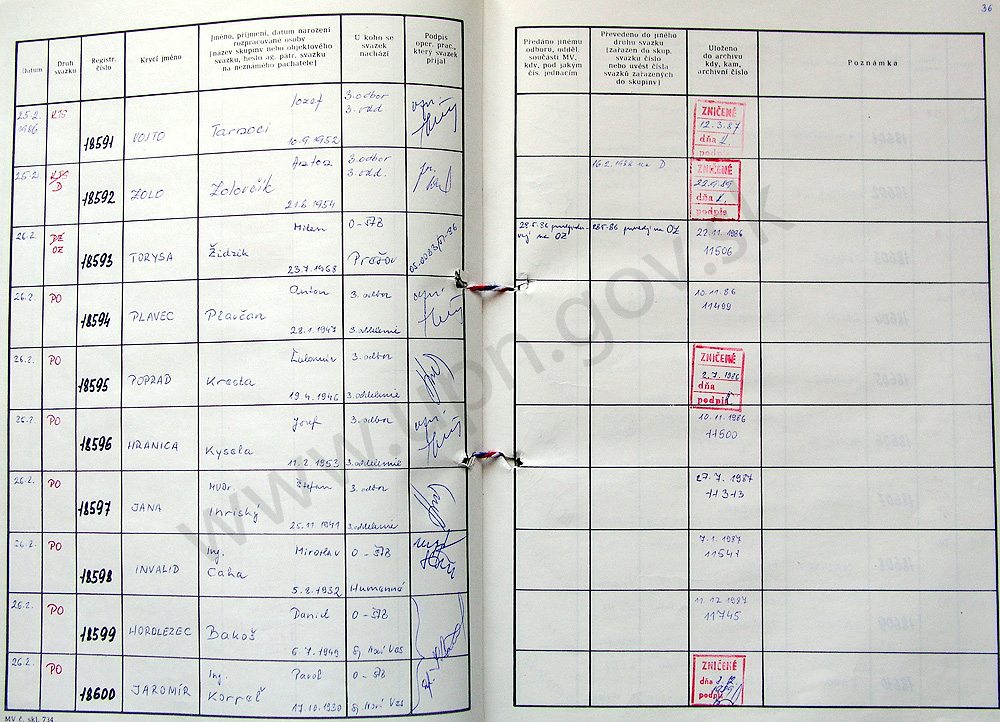 36
Datum
Druh svazku
Registr. číslo
Krycí jméno
Jméno, příjmení, datum narození
rozpracované osoby
[název skupiny nebo objektového
svazku, heslo ag. pátr. svazku
na neznámého pachatele]
U koho se
svazek
nachází
Podpis
oper. prac.,
který svazek
přijal
Předáno jinému
odboru, odděl.
součásti MV,
kdy, pod jakým
čís. jednacím
Převedeno do jiného
druhu svazku
[zařazen do skup.
svazku číslo
nebo uvést čísla
svazků zařazených
do skupiny]
Uloženo
do archivu
kdy, kam,
archivní číslo
Poznámka
25.2. 1986 18591 VOJTO Jozef Tarzoci 10.9.1952 3. odbor 3. odd.
ZNIČENÉ 12.3.87 dňa podpis
25.2. D 18592 ZOLO Zolovčík 21.6.1954 3. odbor 3. odd.
16.2.1988 na D
ZNIČENÉ dňa podpis
26.2. OZ 18593 TORYSA Milan Židzik 23.7.1968 O-ŠTB Prešov
na OZ
22.11.1986
11506
26.2. PO 18594 PLAVEC Anton Plavčan 28.1.1947 3. odbor 3. oddelenie
10.11.86
11499
26.2. PO 18595 POPRAD Ľubomír Kresta 19.4.1946 3. odbor 3. oddelenie
ZNIČENÉ 2.7.1986 dňa podpis
26.2. PO 18596 HRANICA Jozef Kysela 11.2.1953 3. odbor 3. oddelenie
10.11.1986
11500
26.2. PO 18597 JANA MUDr. Štefan Ihriský 25.11.1941 3. odbor 3. oddelenie
27.7.1987
11313
26.2. PO 18598 INVALID Ing. Miroslav Caha 5.8.1932 O-ŠTB Humenné
7.1.1987
11541
26.2. PO 18599 HOROLEZEC Daniel Bakoš 6.7.1949 O-ŠTB Sp. Nová Ves
11.12.1987
11745
26.2. PO 18600 JAROMÍR Ing. Pavol 17.10.1930 O-ŠTB Sp. Nová Ves
ZNIČENÉ dňa podpis
MV č. skl. 734
www.upn.gov.sk